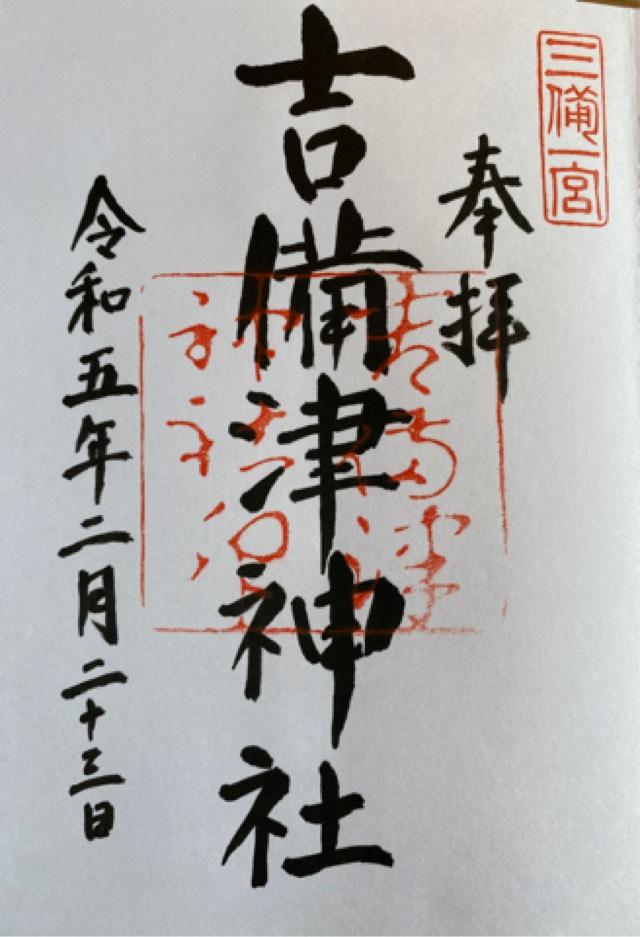 三備一宮
奉拝
吉備津神社
令和五年二月二十三日